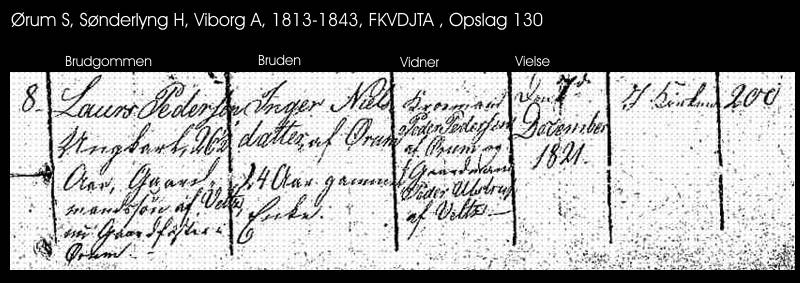 Ørum S, Sønderlyng H, Viborg A, 1813-1843, FKVDJTA , Opslag 130
Brudgommen
Bruden
Vidner
Vielse
8.
Laurs Pedersen
Ungkarl, 26½
Aar, Gaard-
mandssøn af Vellev
nu Gaardfæster i
Ørum.
Inger Niels
datter, af Ørum
24 Aar gammel
Enke.
Peder Pedersen
af Ørum og
Gaardmand
Peder
af Vellev
Den 7de
December
1821.
I Kirken
200